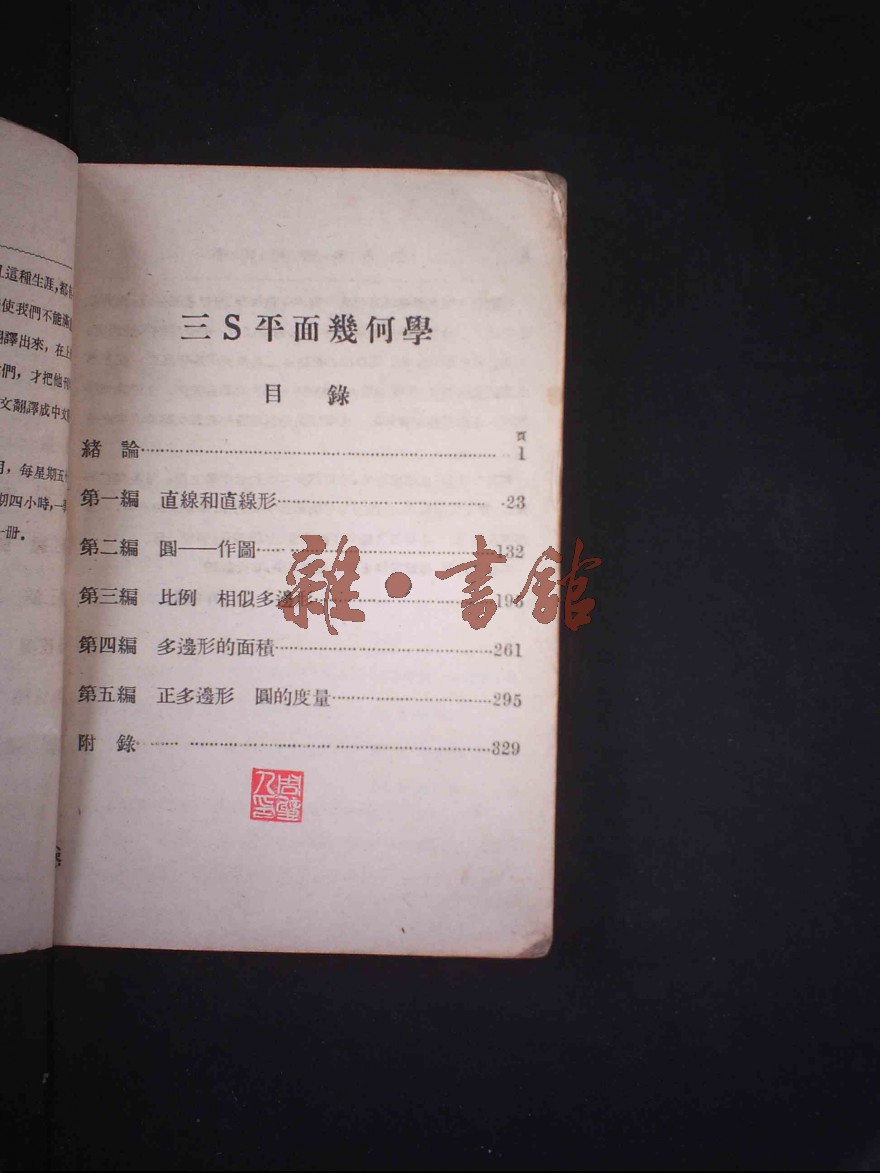 這種生涯,都
使我們不能滿
翻譯出來,在上
們,才把他刊
文翻譯成中文
月,每星期五
初四小時,一
一冊.
三S平面幾何學
目錄
頁
緒論 1
第一編 直線和直線形 23
第二編 圓——作圖 132
第三編 比例 相似多邊形
第四編 多邊形的面積 261
第五編 正多邊形 圓的度量 295
附錄 329
雜·書館